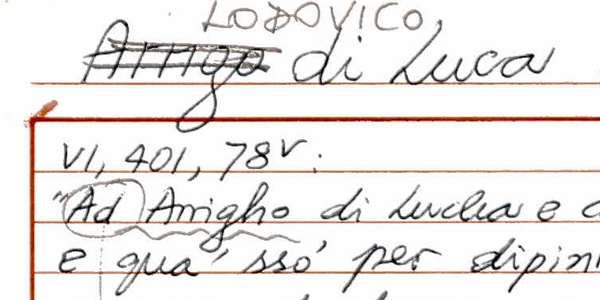 LODOVICO,
Arrigo di Luca
VI, 401, 78v:
"Ad Arrigho di Lucha e
e qua' sso' per dipin